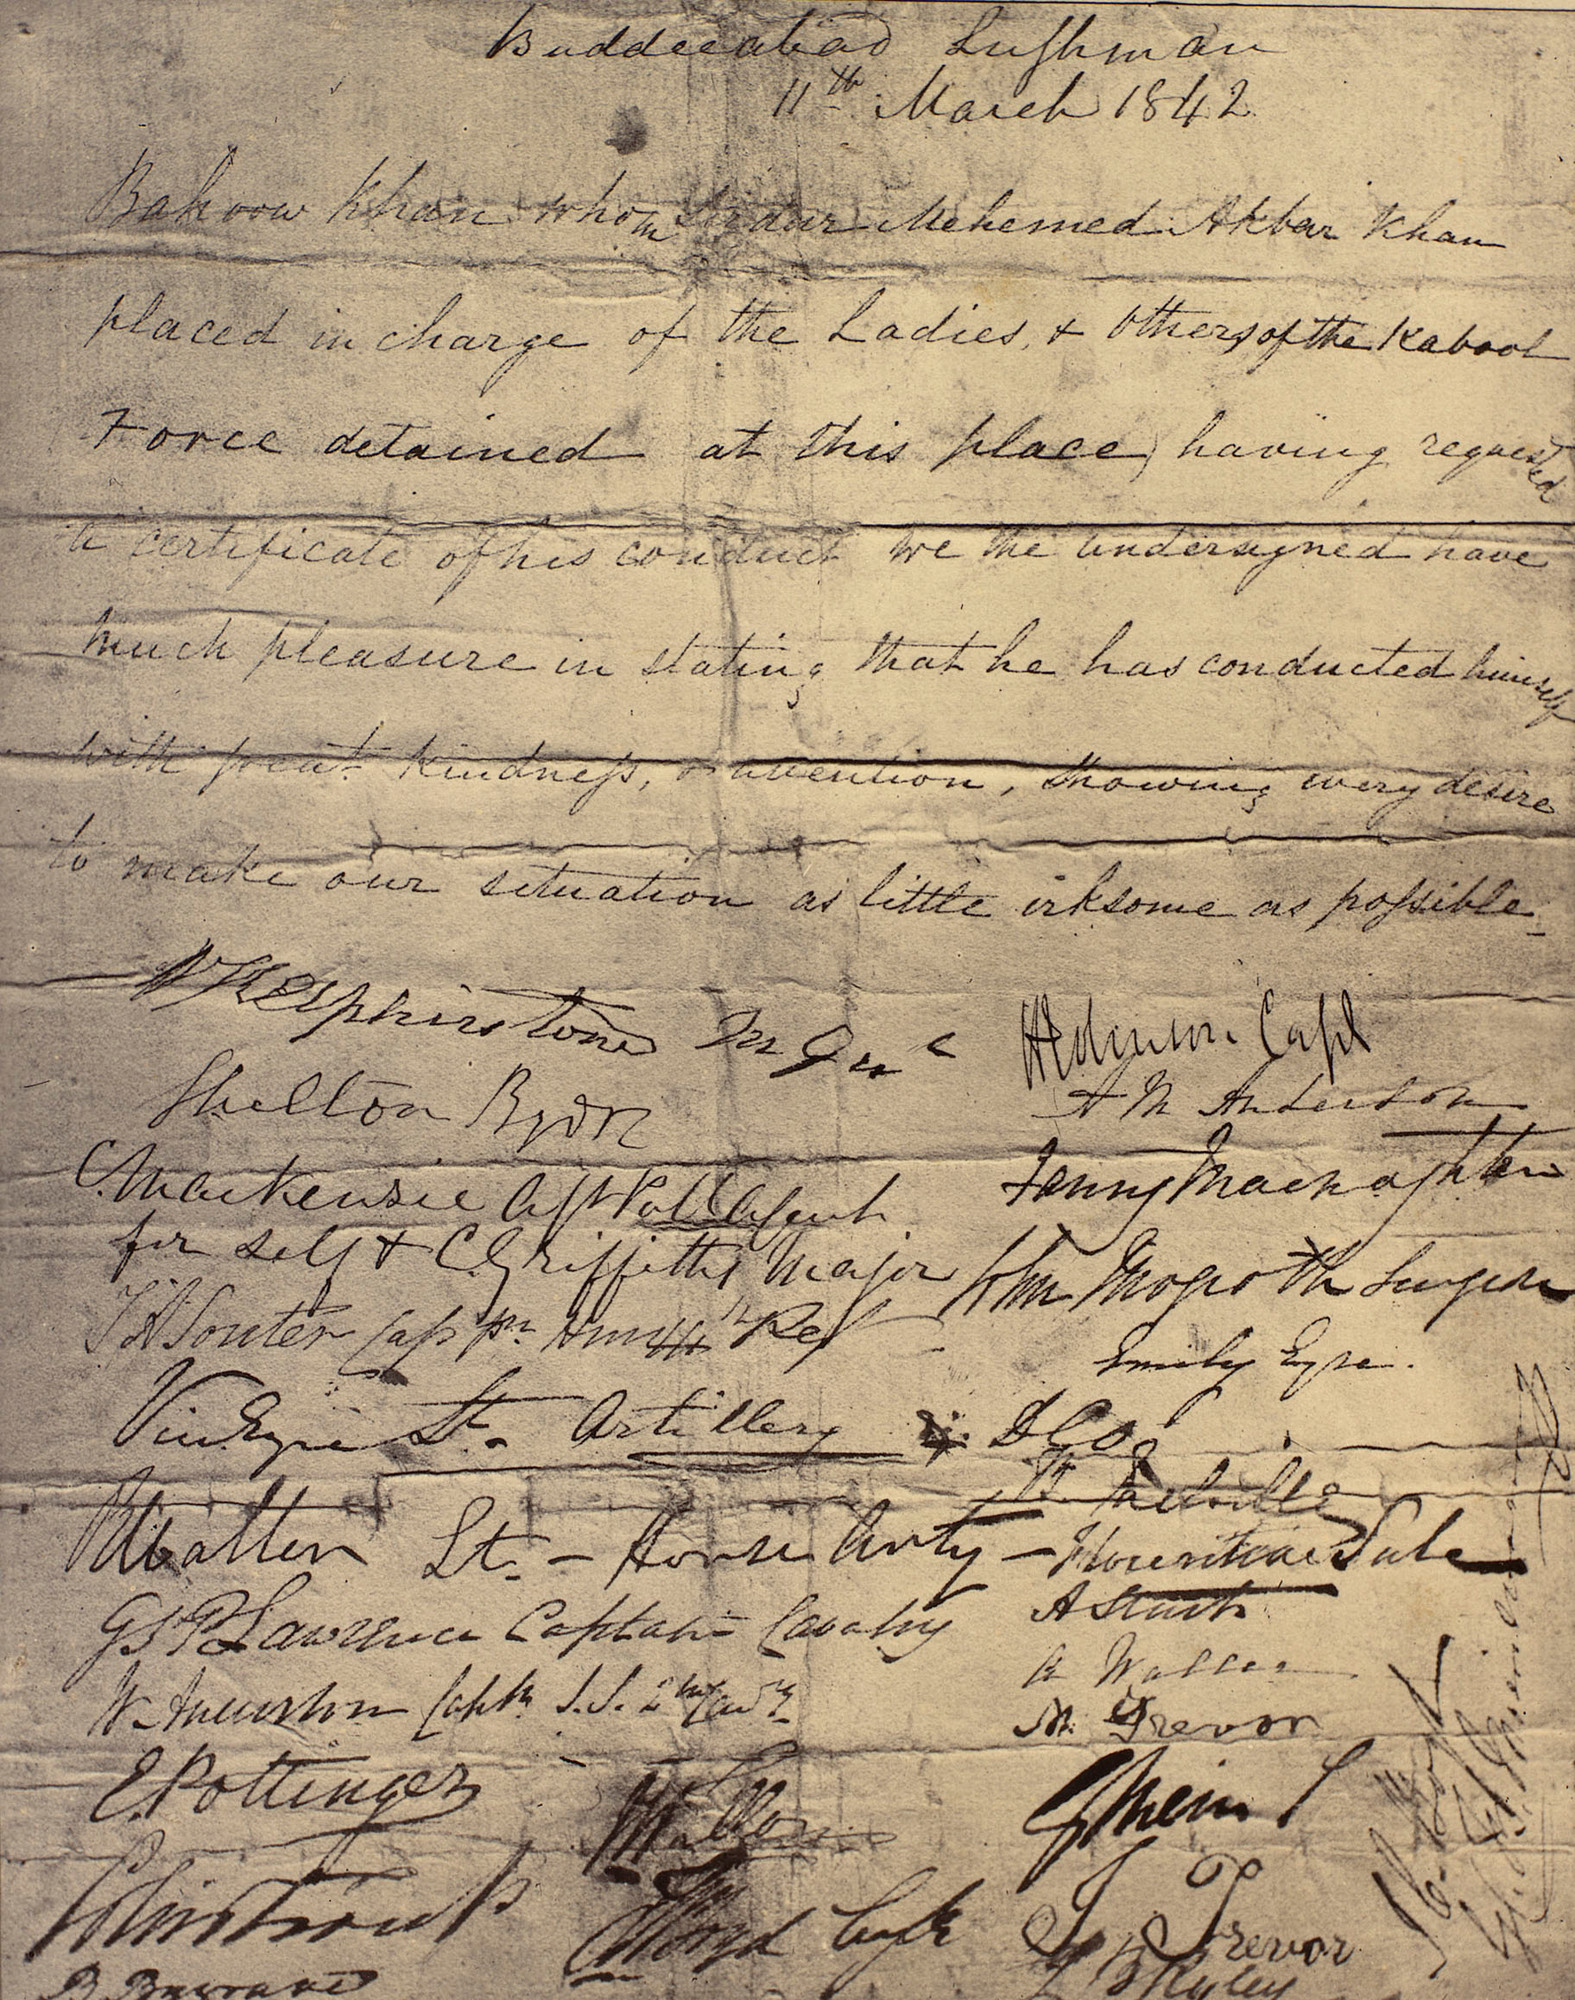 Buddeeabad Lughman
11th March 1842
Bakoow Khan whom Sirdar Mehemed Akbar Khan
placed in charge of the Ladies, & others of the Kabool
Force detained at this place) having requested
a certificate of his conduct we the undersigned have
much pleasure in stating that he has conducted himself
with great kindness, & attention, showing every desire
to make our situation as little irksome as possible
WKElphinstone M Genl
Shelton Brigdr
C. Mackenzie Asst Poll Agent
for self & C. Griffiths Major
TASouter Capn HM 44th Regt
Vin. Eyre Lt. Artillery
RWaller Lt. - Horse Arty
GStPLawrence Captain Cavalry
W. Anderson Captn S.S. 2nd Cavy
E. Pottinger
Capt
A M Anderson
Fanny Macnaghten
Magrath Surgeon
Emily Eyre.
Melville
Florentia Sale
A Sturt
Waller
M. Trevor
GMein
Boyd
Trevor
Ryley